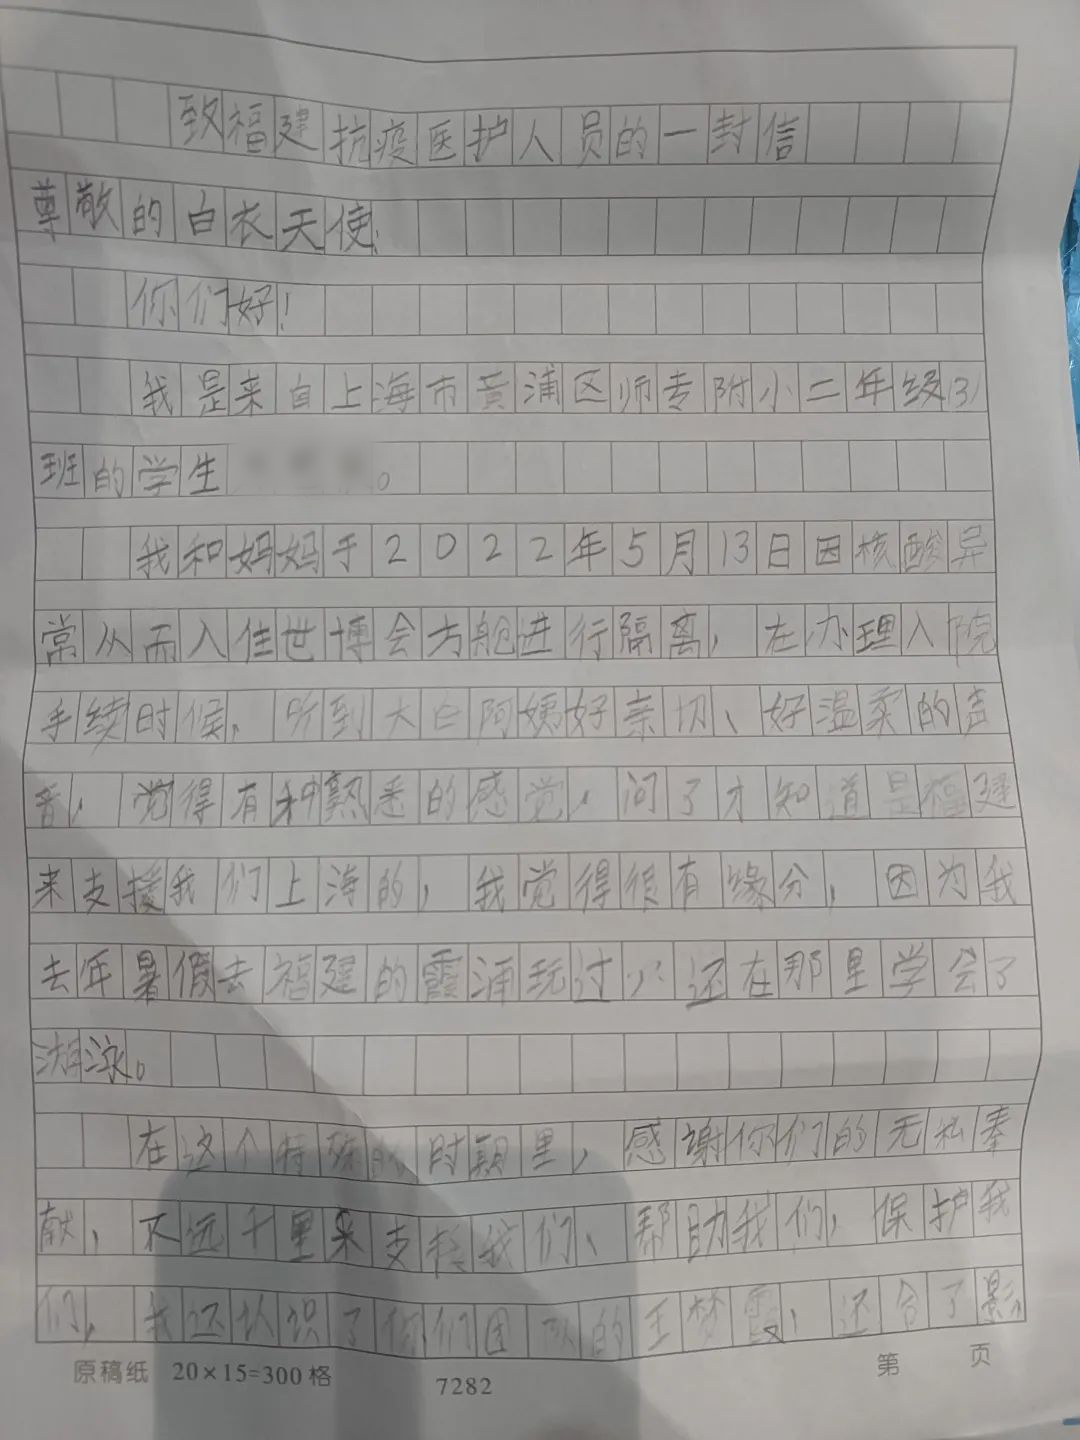 致福建抗疫医护人员的一封信
尊敬的白衣天使:
你们好!
我是来自上海市黄浦区师专附小二年级(3)
班的学生 。
我和妈妈于2022年5月13日因核酸异
常从而入住世博会方舱进行隔离,在办理入院
手续时候,听到大白阿姨好亲切、好温柔的声
音,觉得有种熟悉的感觉,问了才知道是福建
来支援我们上海的,我觉得很有缘分,因为我
去年暑假去福建的霞浦玩过,还在那里学会了
游泳。
在这个特殊的时期里,感谢你们的无私奉
献,不远千里来支援我们、帮助我们,保护我
们,我还认识了你们团队的王梦霞,还合了影,
原稿纸 20×15=300格
7282
第 页